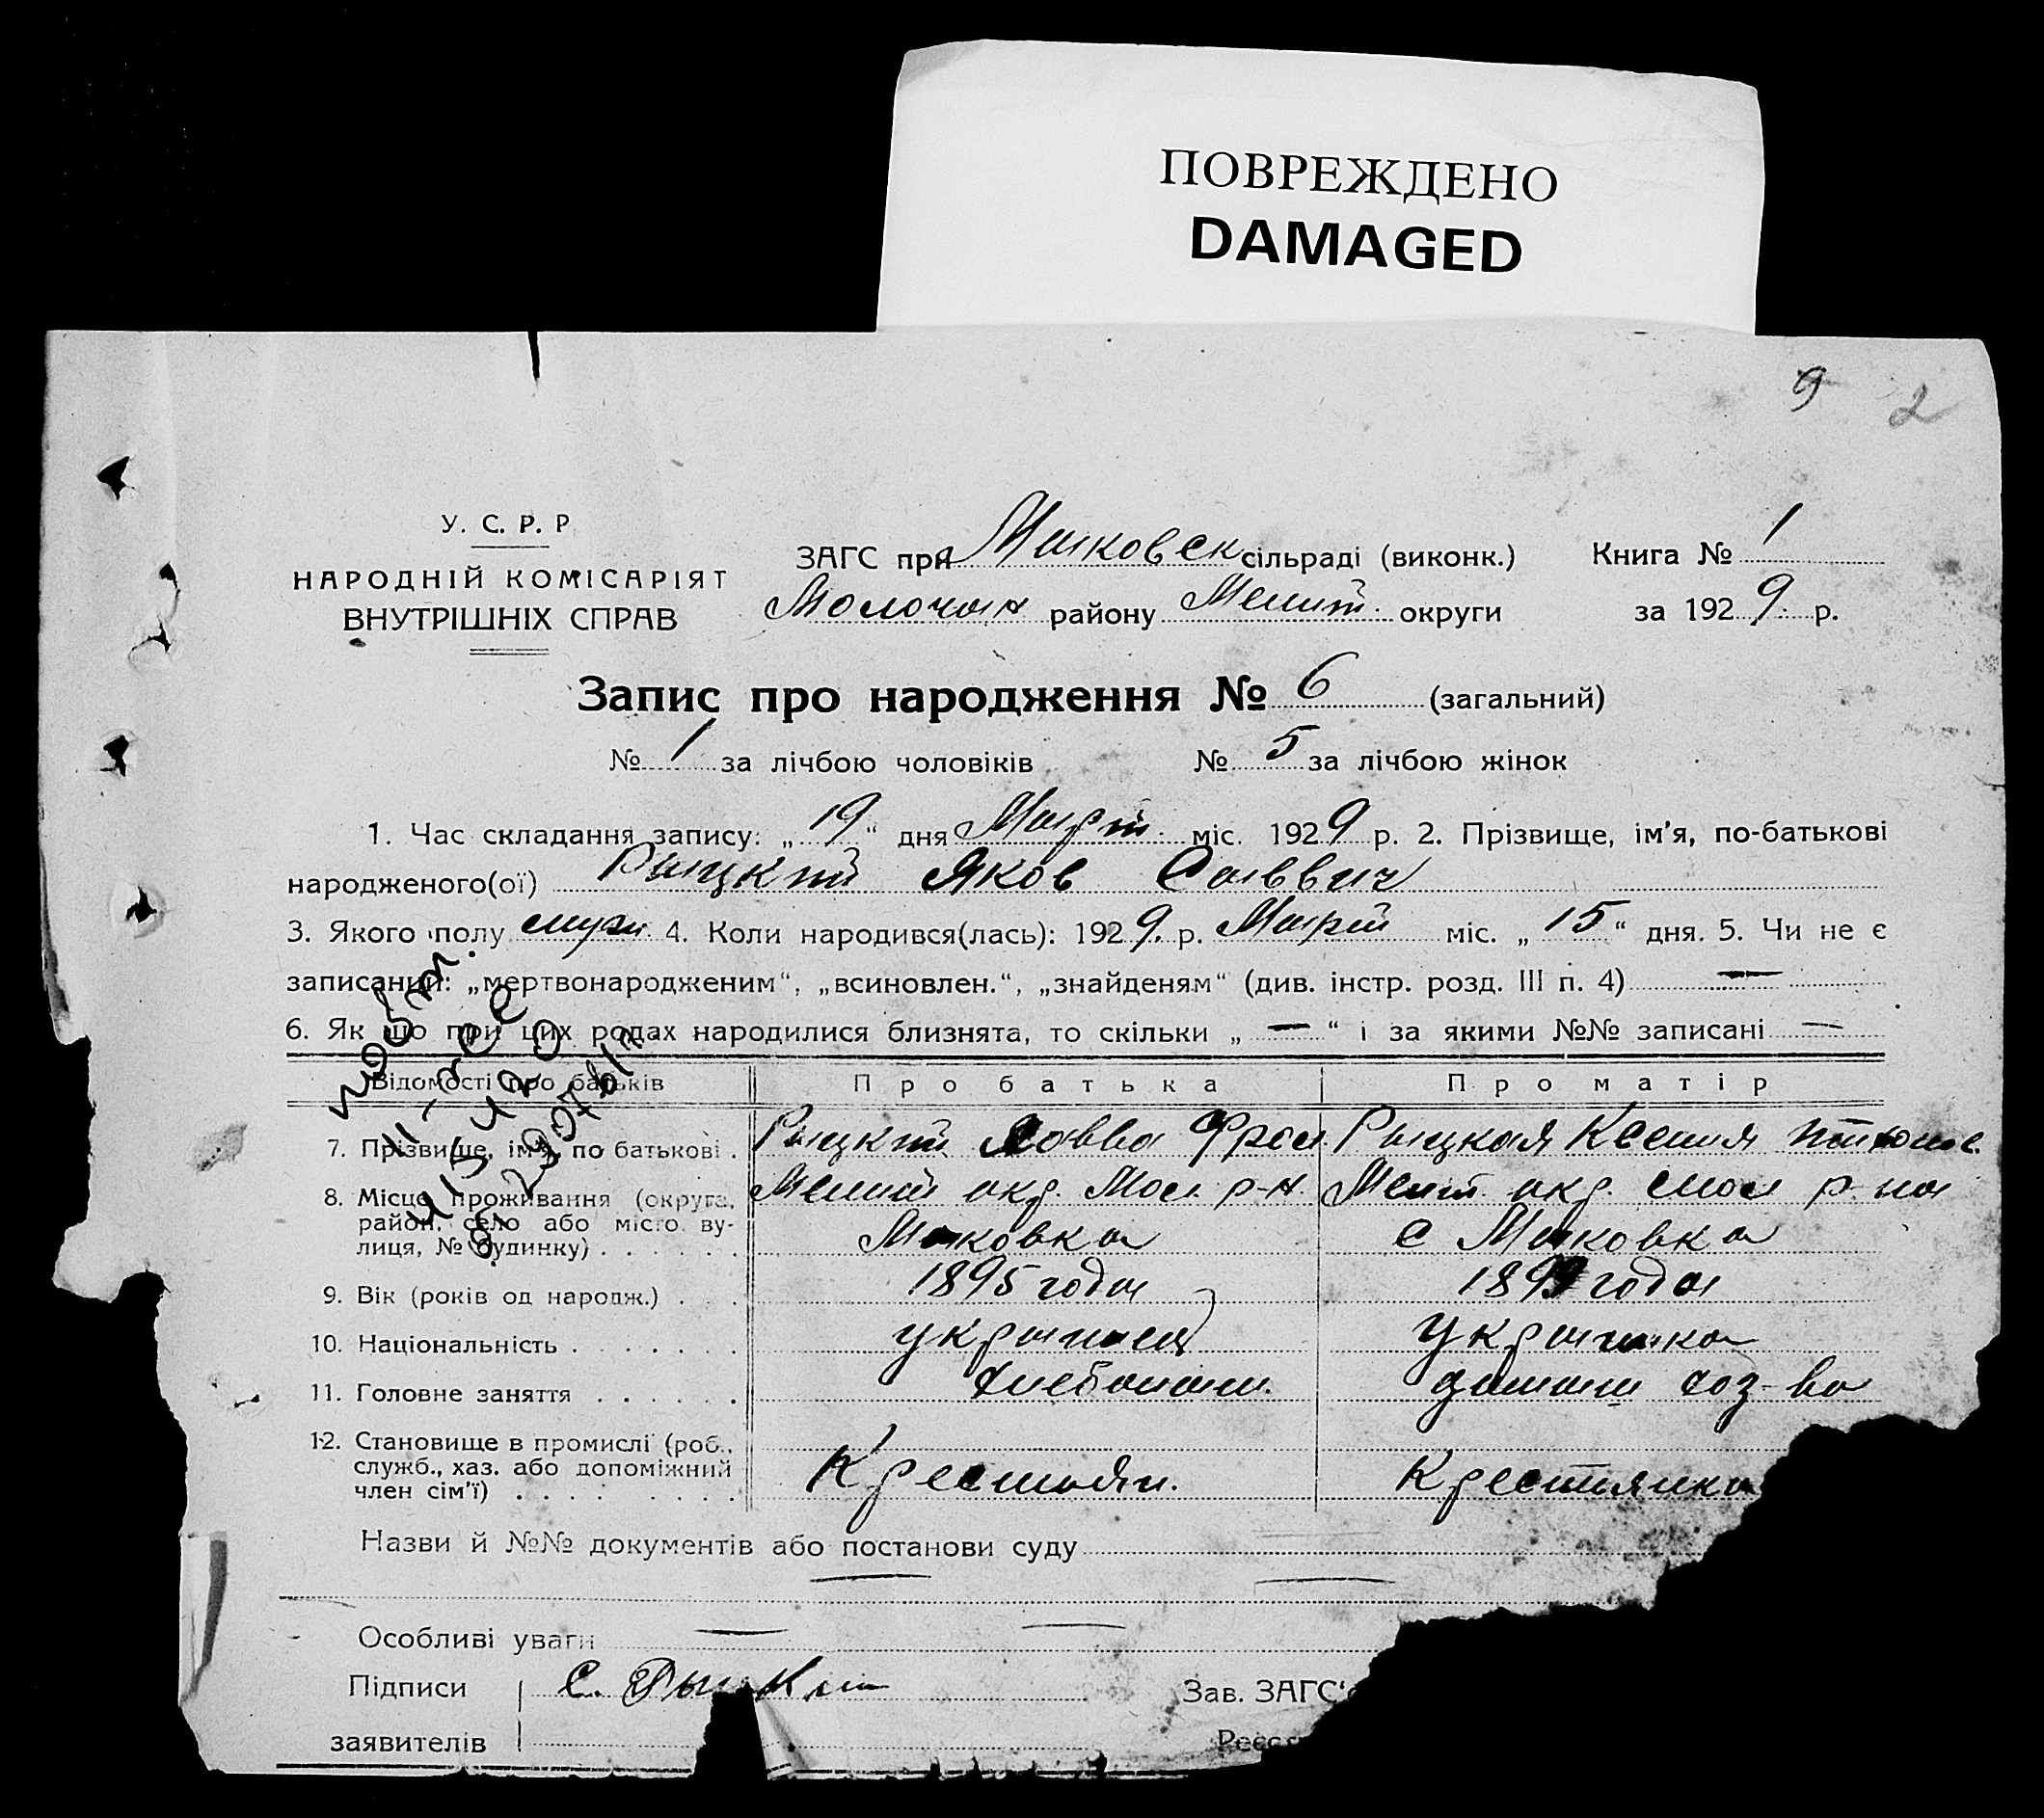 ПОВРЕЖДЕНО
DAMAGED
9 2
У. С. Р. Р
НАРОДНІЙ КОМІСАРІЯТ
ВНУТРІШНІХ СПРАВ
ЗАГС при Маковск сільраді (виконк.) Книга № 1
Молочан району Мелит. округи за 1929 р.
Запис про народження № 6 (загальний)
№ 1 за лічбою чоловіків № 5 за лічбою жінок
1. Час складання запису: „19“ дня Март. міс. 1929 р. 2. Прізвище, ім'я, по-батькові
народженого(ої) Яков Саввич
3. Якого полу муж. 4. Коли народився(лась): 1929. р. Март міс. „15“ дня. 5. Чи не є
записаний: „мертвонародженим“, „всиновлен.“, „знайденям“ (див. інстр. розд. III п. 4) —
6. Як що при цих родах народилися близнята, то скільки „ — “ і за якими №№ записані —
Відомості про батьків Про батька Про матір
7. Прізвище, ім'я, по батькові . Савва Ксения
8. Місце проживання (округа, Мелит окр. Мол. р-н Мелит. окр. Мол р-на
район, село або місто, ву-
лиця, № будинку) . . . . . . Маковка с Маковка
9. Вік (років од народж.) . . . 1895 года года
10. Національність . . . . . . . украинец Украинка
11. Головне заняття . . . . . . Хлебопаш. домаш хоз-во
12. Становище в промислі (роб.,
служб., хаз. або допоміжний Крестьян. Крестьянка
член сім'ї) . . . . . . . . .
Назви й №№ документів або постанови суду
Особливі уваги
Підписи С. Зав. ЗАГС‘
заявителів